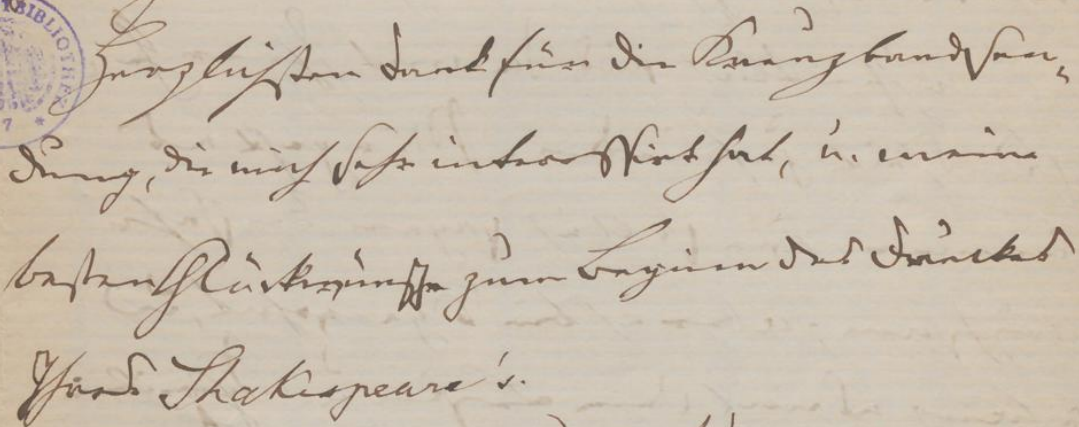 BIBLIOTHEK
Herzlichsten Dank für die Kreuzbandsen-
dung, die mich sehr interessirt hat, u. meine
besten Glückwünsche zum Beginn des Druckes
Ihres Shakespeare's.